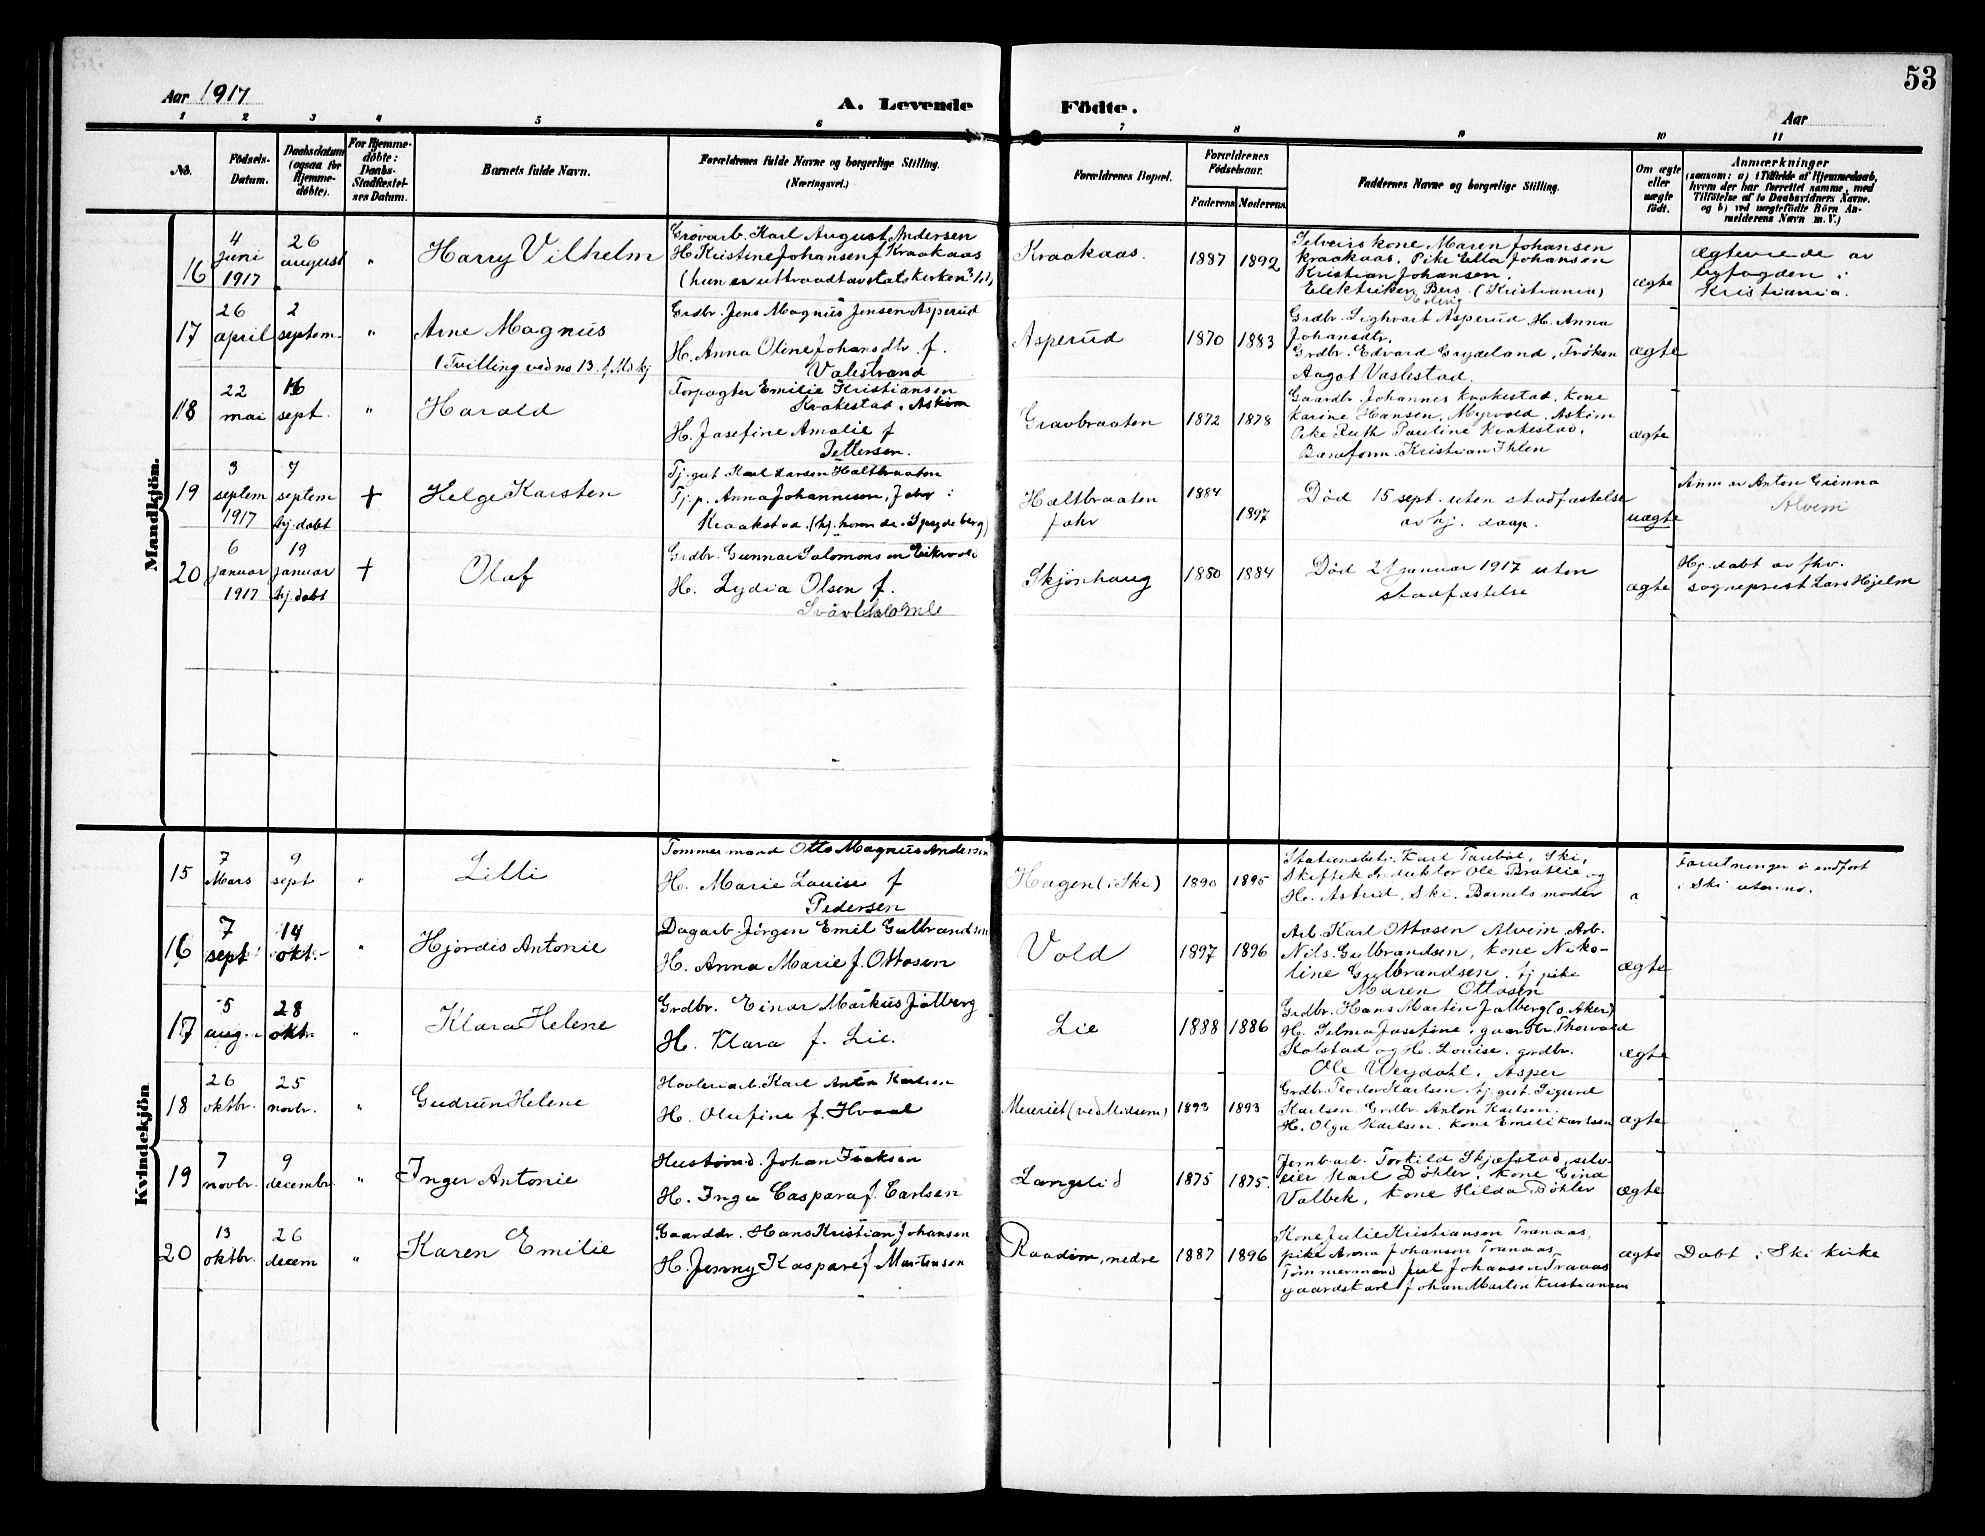 53
Aar 1917
A. Levende Födte.
Aar
1 2 3 4 5 6 7 8 9 10 11
No.
Födsels-
Datum.
Daabsdatum
(ogsaa for
Hjemme-
döbte).
For Hjemme-
döbte:
Daabs-
Stadfæstel-
ses Datum.
Barnets fulde Navn.
Forældrenes fulde Navne og borgerlige Stilling.
(Næringsvei.)
Forældrenes Bopæl.
Forældrenes
Födselsaar.
Faderens Moderens
Faddernes Navne og borgerlige Stilling.
Om ægte
eller
uægte
födt.
Anmærkninger
(saasom: a) i Tilfælde af Hjemmedaab,
hvem der har forrettet samme, med
Tilföielse af to Daabsvidners Navne.
og b) ved uægtefödte Börn An-
melderens Navn m. V.)
Mandkjön.
16
4
juni
1917
26
august
"
Harry Vilhelm
Grovarb. Karl August Andersen
H. Kristine Johansen f. Kraakaas
(hun er uttraadt av statskirken
Kraakaas.
1887 1892
Selveirs kone Maren Johansen
Kraakaas, Pike Ella Johansen
Kristian Johansen,
Elektriker Berg (Kristiania)
ægte
Ægteviede av
byfogden i
Kristiania.
17
26
april
2
septem.
"
Arne Magnus
(Tvilling ved no 13 f. Mskj
Grdbr. Jens Magnus Jensen Asperud
H. Anna Oline Johansdtr. f.
Valestrand
Asperud
1870 1883
Grdbr. Sighvart Asperud H. Anna
Johansdtr.
Grdbr. Edvard Grydeland, Frøken
Aagot Vaslestad.
ægte
18
22
mai
16
sept.
"
Harald
Forpagter Emilie Kristiansen
Krakestad, Askim
H. Josefine Amalie f
Pettersen.
Gravbraaten
1872 1878
Gaardbr. Johannes Krakestad, kone
Karine Hansen, Myrvold, Askim
Pike Ruth Pauline Krakestad,
Baneform. Kristian Ihlen
ægte
19
3
septem
1917
7
septem
hj. døbt
+
Helge Karsten
Tj. gut Karl Larsen Haltbraaten
Tj. p. Anna Johannesen, Fahr i
Kraakstad. (hj. hørende i Spydeberg)
Haltbraaten
Fahr
1884
1897
Død 15 sept. uten stadfæstelse
av hj. daap.
uægte
Anm av Anton Grinna
Alveni
20
6
januar
1917
19
januar
hj. døbt
+
Olaf
Grdbr. Gunnar Salomonsen Eikvold
H. Lydia Olsen f.
Skjønhaug
1880 1884
Død 21 januar 1917 uten
stadfæstelse
ægte
Hj. døbt av fhv.
sogneprest Lars Hjelm
Kvindekjön
15
7
Mars
9
sept
"
Lilli
Tømmermand Otto Magnus Andersen
H. Marie Louise f
Pedersen
Hagen (i Ski)
1890 1895
Stationsbetj. Karl Taubøl, Ski,
Skiftekonduktør Ole Bratlie og
H. Astrid, Ski. Barnets moder
Forretninger i indført
i Ski uten no.
16
7
sept.
14
okt.
"
Hjørdis Antonie
Dagarb. Jørgen Emil Gulbrandsen
H. Anna Marie f. Ottosen
Vold
1897 1896
Arb. Karl Ottosen Alveim Arb.
Nils Gulbrandsen, kone Niko-
line Gulbrandsen. tj pike
Maren Ottosen
ægte
17
5
aug.
28
okt.
"
Klara Helene
Grdbr. Einar Markus Jølberg
H. Klara f. Lie.
Lie
1888 1886
Grdbr. Hans Martin Jølberg (o. Aker)
H. Selma Josefine, gaardbr. Thorvald
Kolstad og H. Louise. grdbr.
Ole Weydahl, Asper
ægte
18
26
oktbr.
25
novbr.
"
Gudrun Helene
Høvleriarb. Karl Anton Karlsen
H. Olufine f. Hvaal
Meieriet (ved Midsem)
1893 1893
Grdbr. Teodor Karlsen. tj. gut Sigurd
Karlsen. Grdbr. Anton Karlsen.
H. Olga Karlsen. kone Emilie Karlsen
ægte
19
7
novbr.
9
decembr.
"
Inger Antonie
Hustømd. Johan Isaksen
H. Inga Caspara f. Carlsen
Langelid
1875 1875.
Jernb.arb. Torkild Skjæfstad, selv-
eier Karl Døhler, kone Gina
Valbek, kone Hilda Døhler
ægte
20
13
oktbr.
26
decem
"
Karen Emilie
Gaardbr. Hans Kristian Johansen
H. Jenny Kaspare f Martensen
Raadim, nedre
1887 1896
Kone Julie Kristiansen Tranaas,
pike Anna Johansen Tranaas
Tømmermand Jul. Johansen Tranaas
gaardskarl Johan Martin Kristiansen
ægte
Døbt i Ski kirke